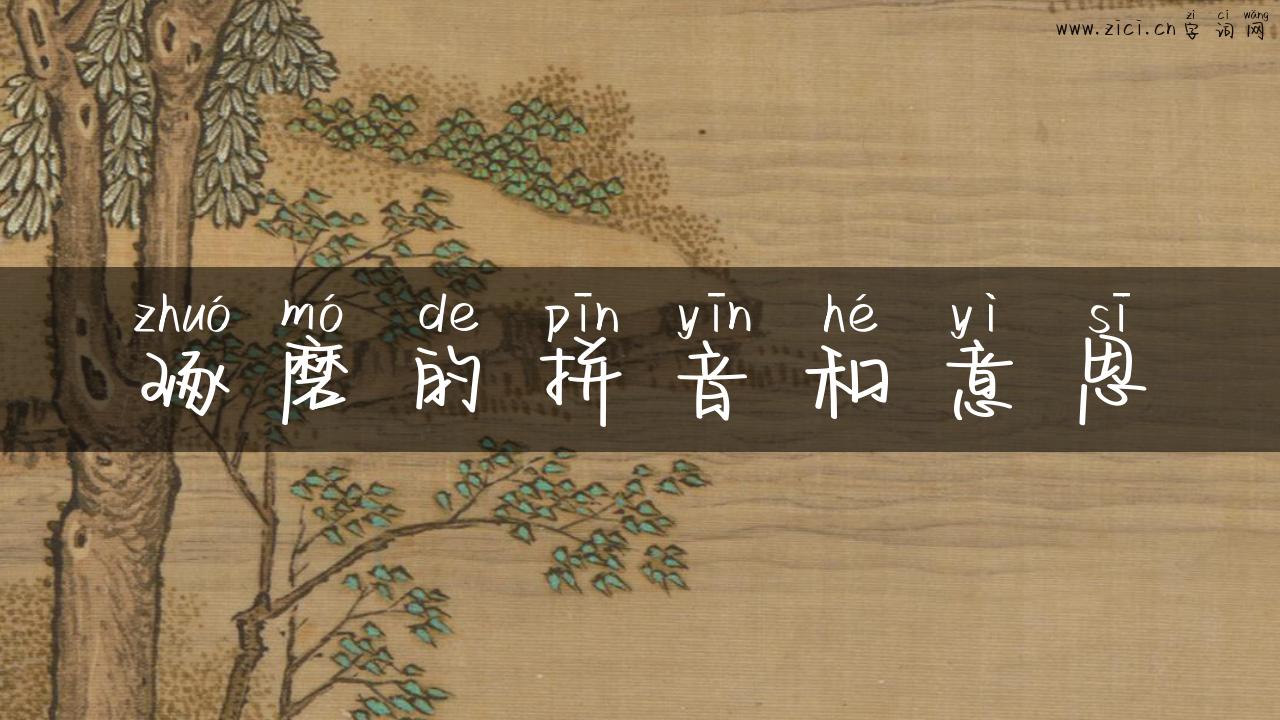 zì cí wǎng
www.zici.cn 字词网
zhuó mó de pīn yīn hé yì sī
琢磨的拼音和意思